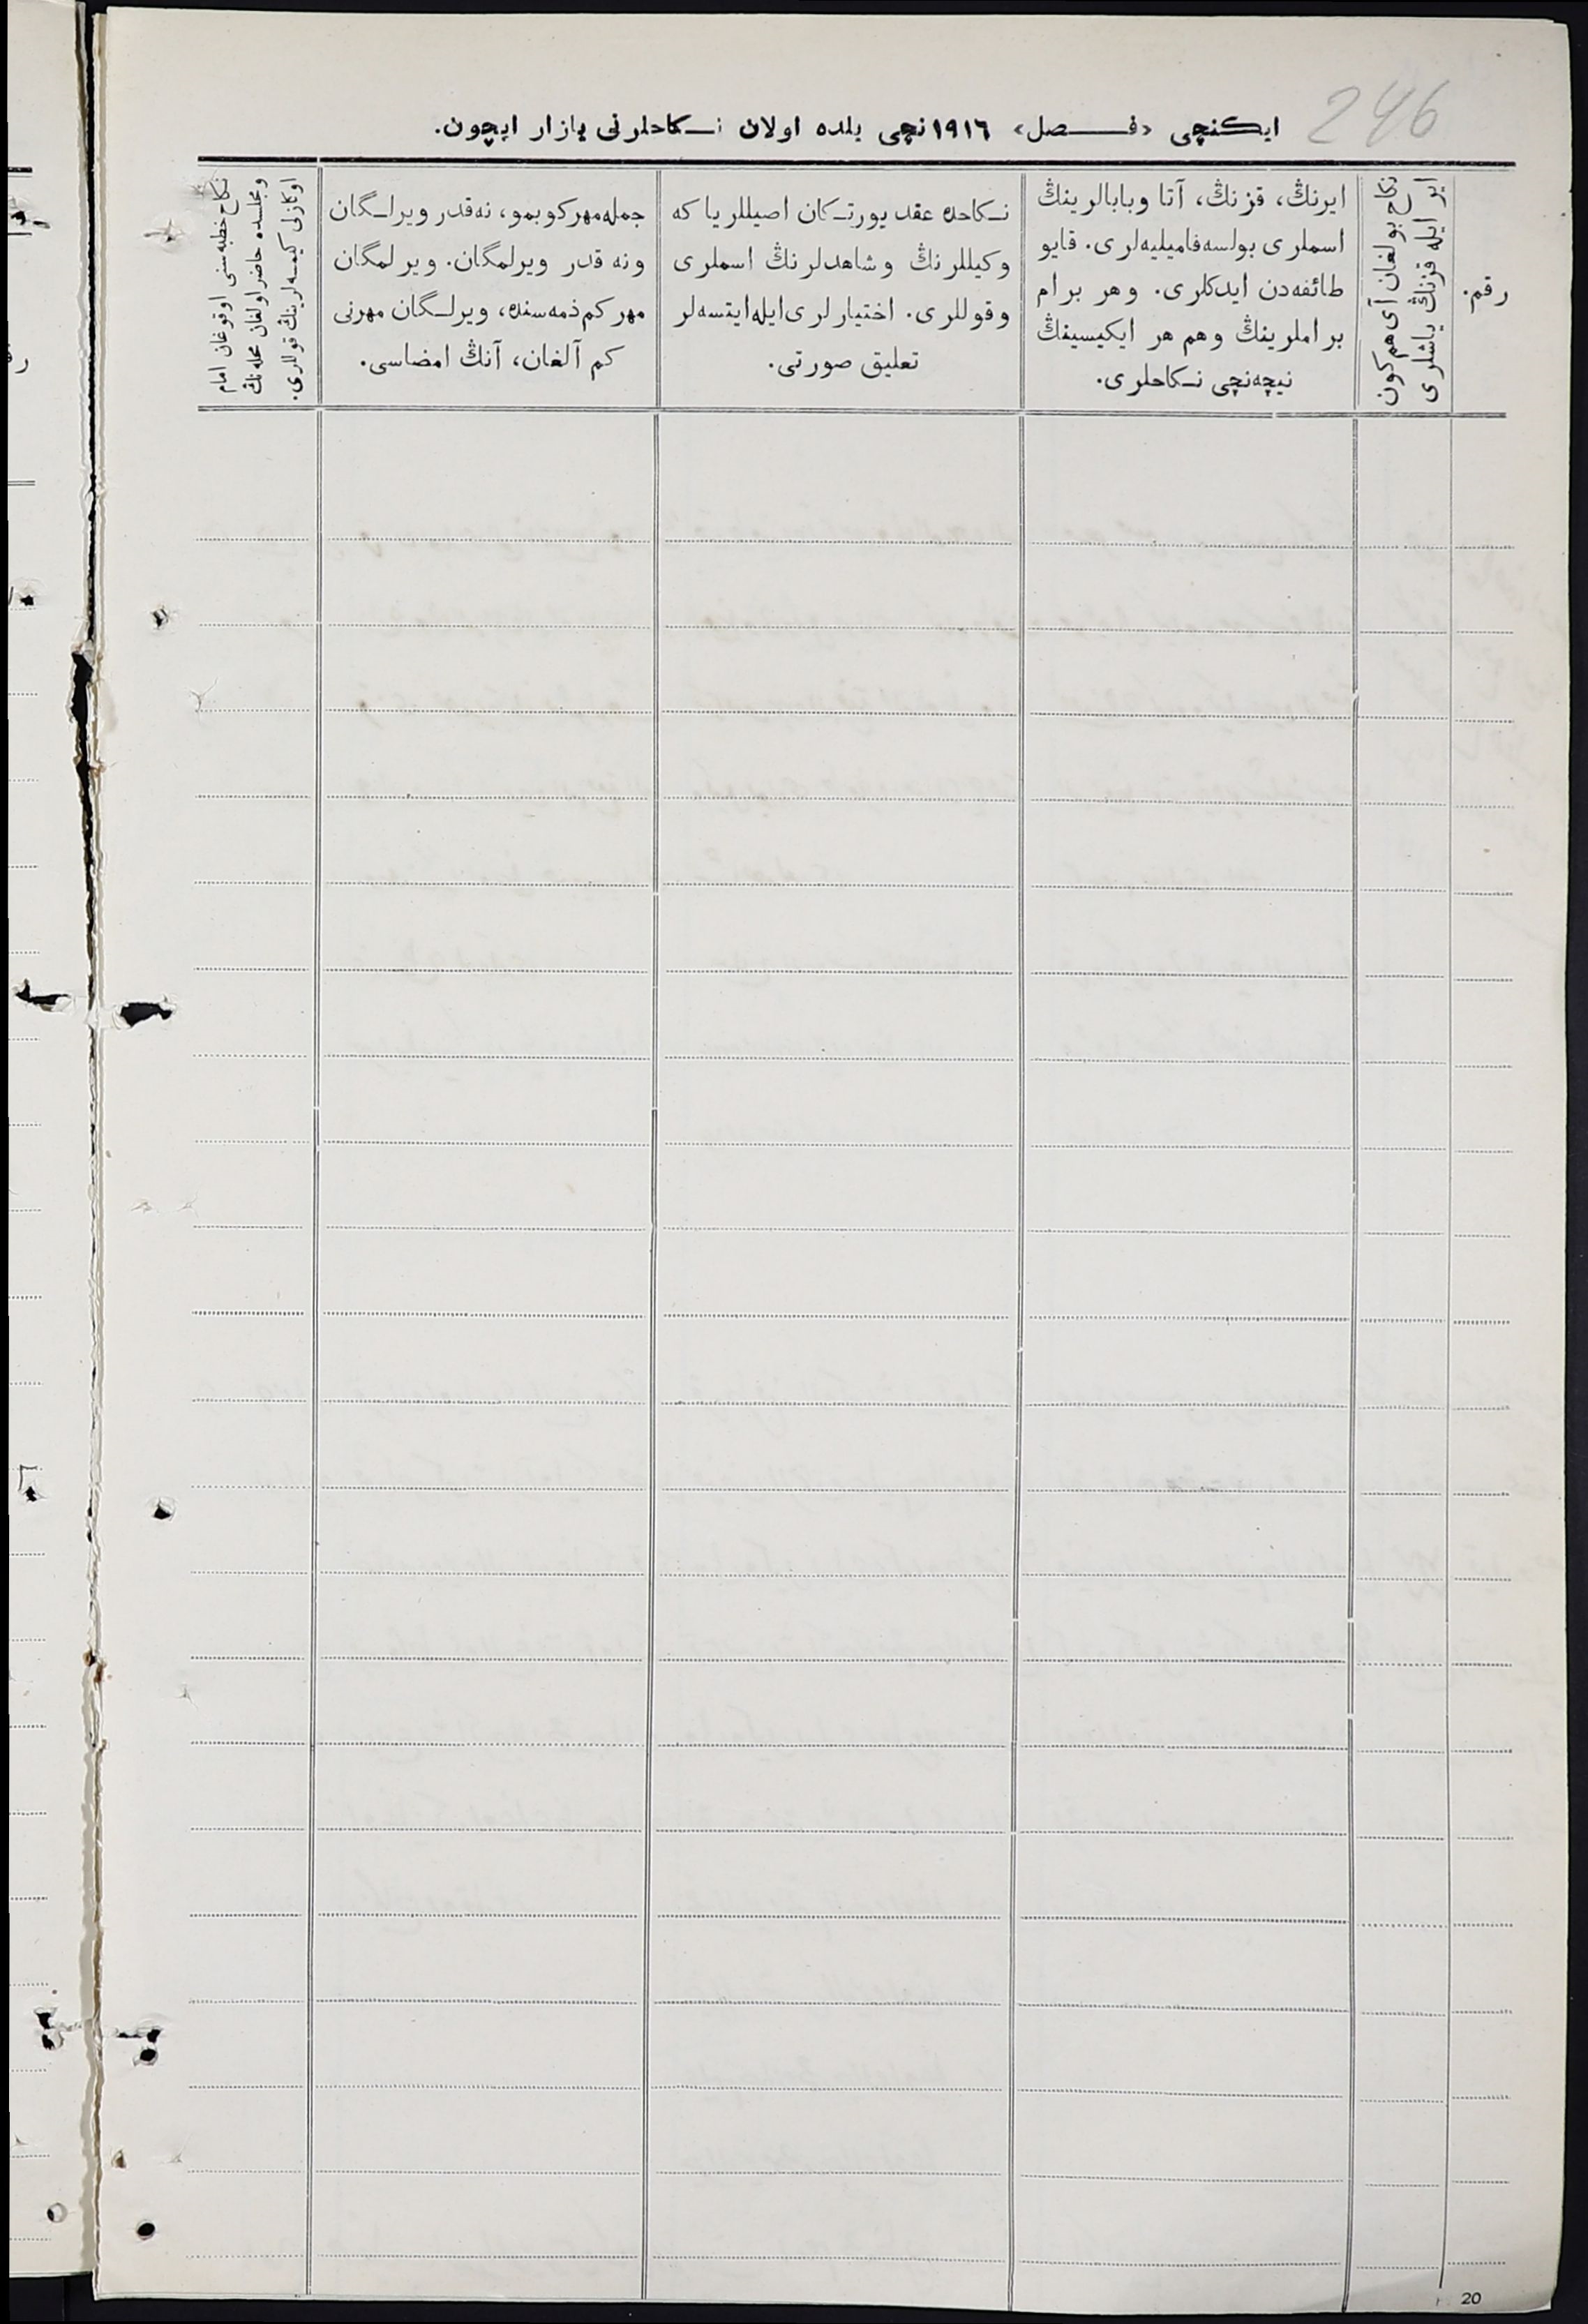 246
ایكنچی «فـــصل» ١٩١٦ نچی یلده اولان نـكاحلرنی یازار ایچون.
رقم.
نكاح بولغان آی هم كون
ایر ایله قزنڭ یاشلری
ایرنڭ، قزنڭ، آتا وبابالرینڭ
اسملری بولسه فامیلیه‌لری. قایو
طائفه‌دن ایدكلری. وهر برام
براملرینڭ وهم هر ایكیسینڭ
نیچه‌نچی نـكاحلری.
نـكاحده عقد یورتـكان اصیللر یا كه
وكیللرنڭ وشاهدلرنڭ اسملری
وقوللری. اختیارلری ایله ایتسه‌لر
تعلیق صورتی.
جمله مهر كوبمو، نه‌قدر ویرلـگان
ونه قدر ویرلمگان. ویرلمگان
مهر كم ذمه‌سنده، ویرلـگان مهرنی
كم آلغان، آنڭ امضاسی.
نكاح خطبه‌سنی اوقوغان امام
ومجلسده حاضر اولغان محله‌نڭ
اوكازنی كیمسه‌لرینڭ قوللری.
20